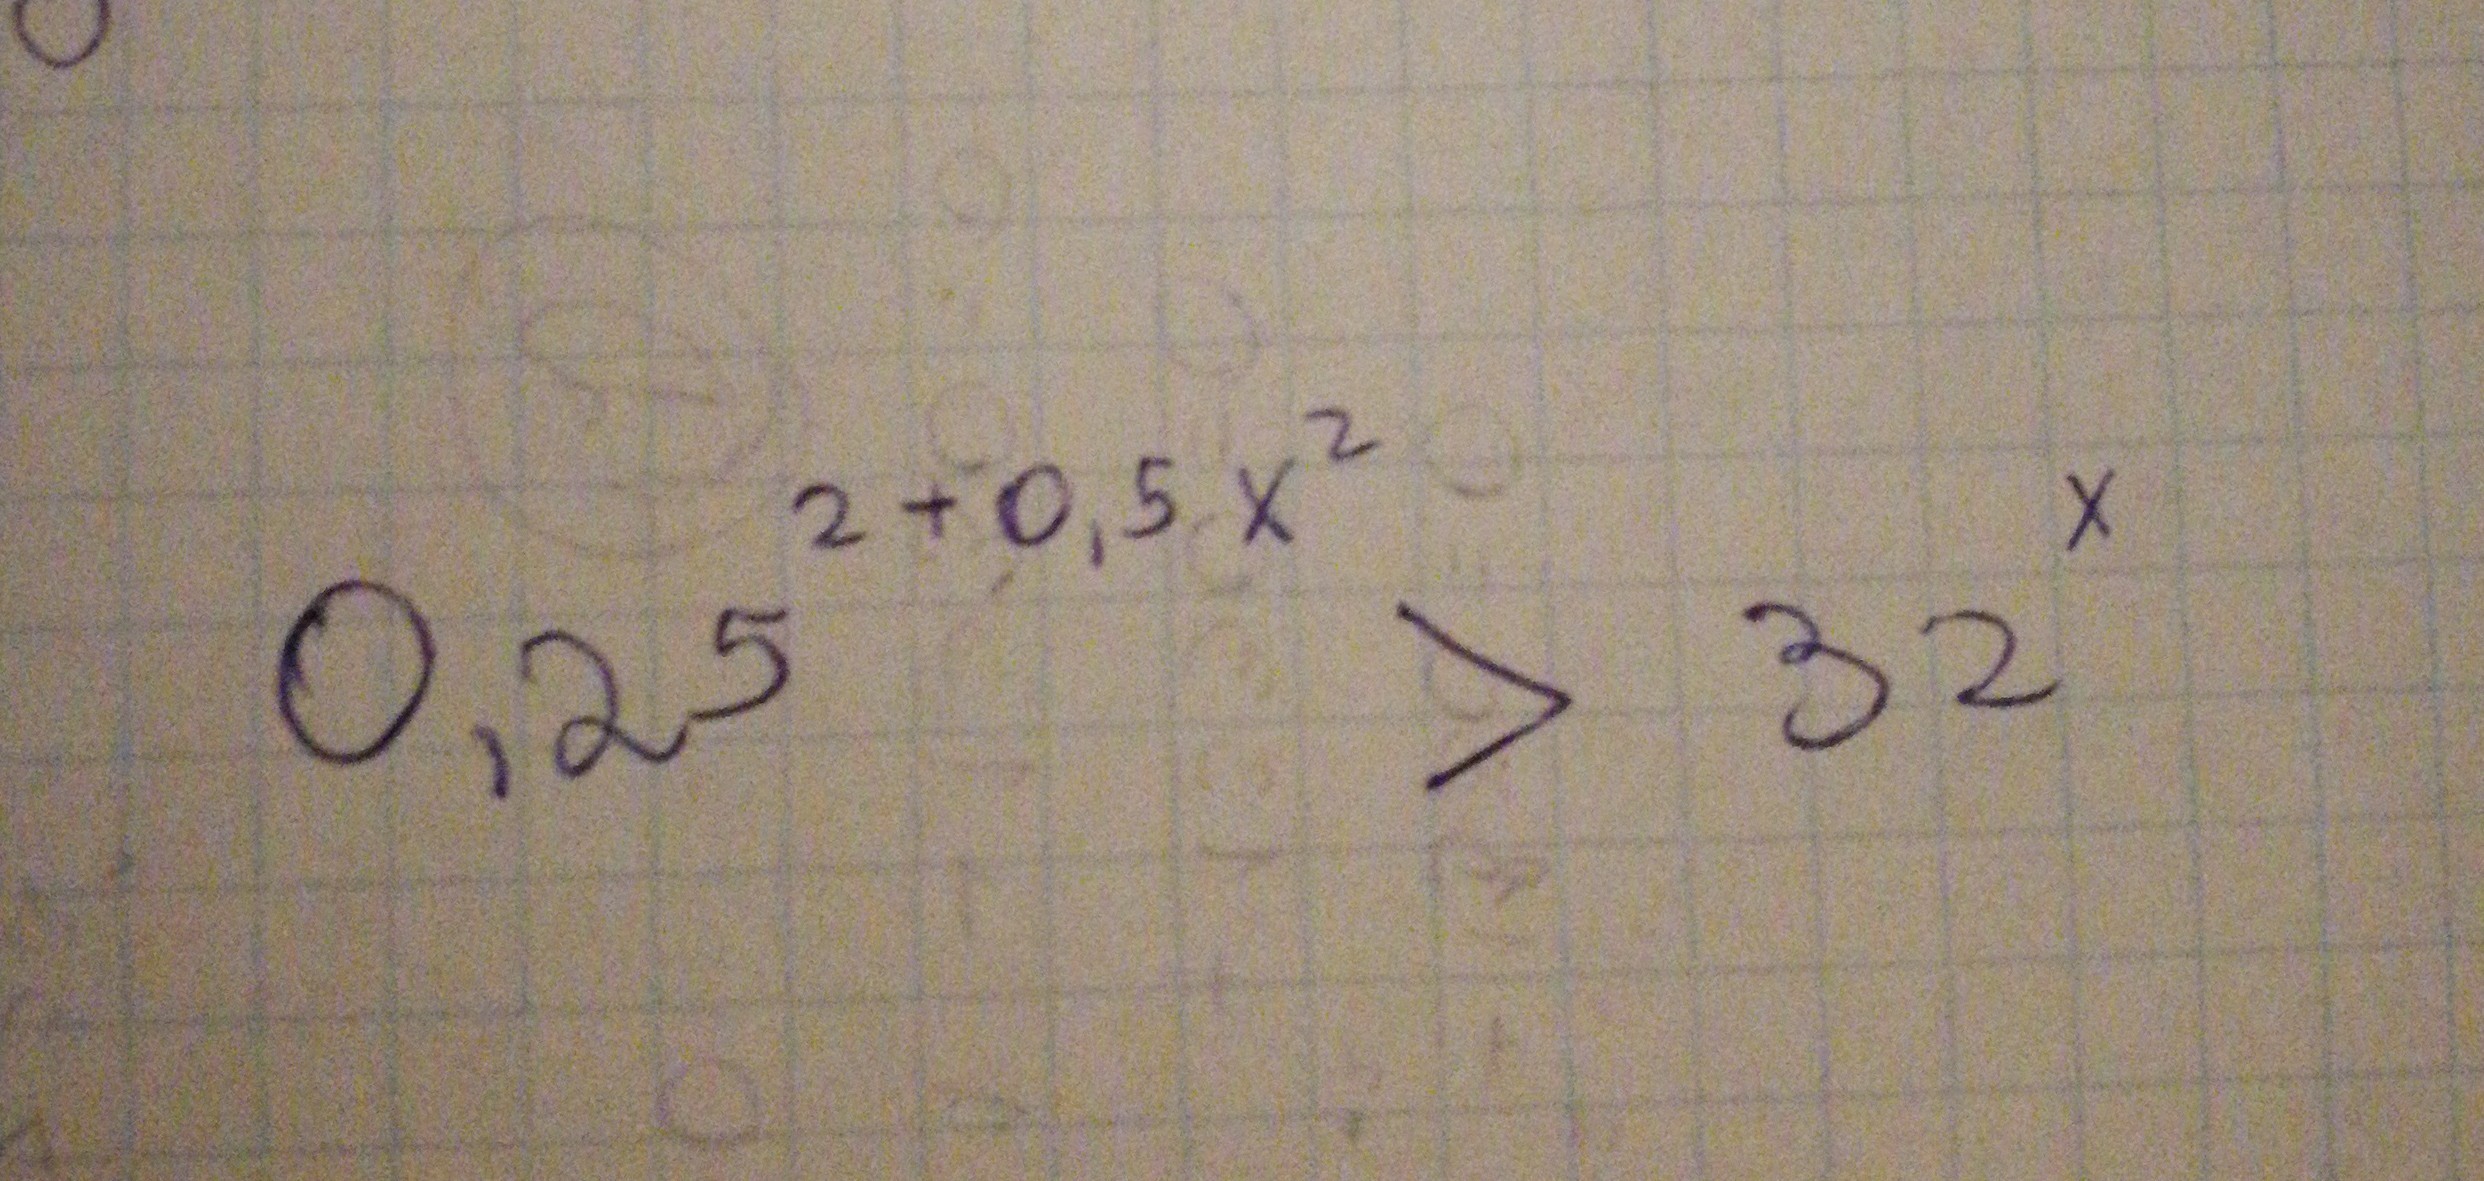 0,25^{2+0,5x^2} > 32^x